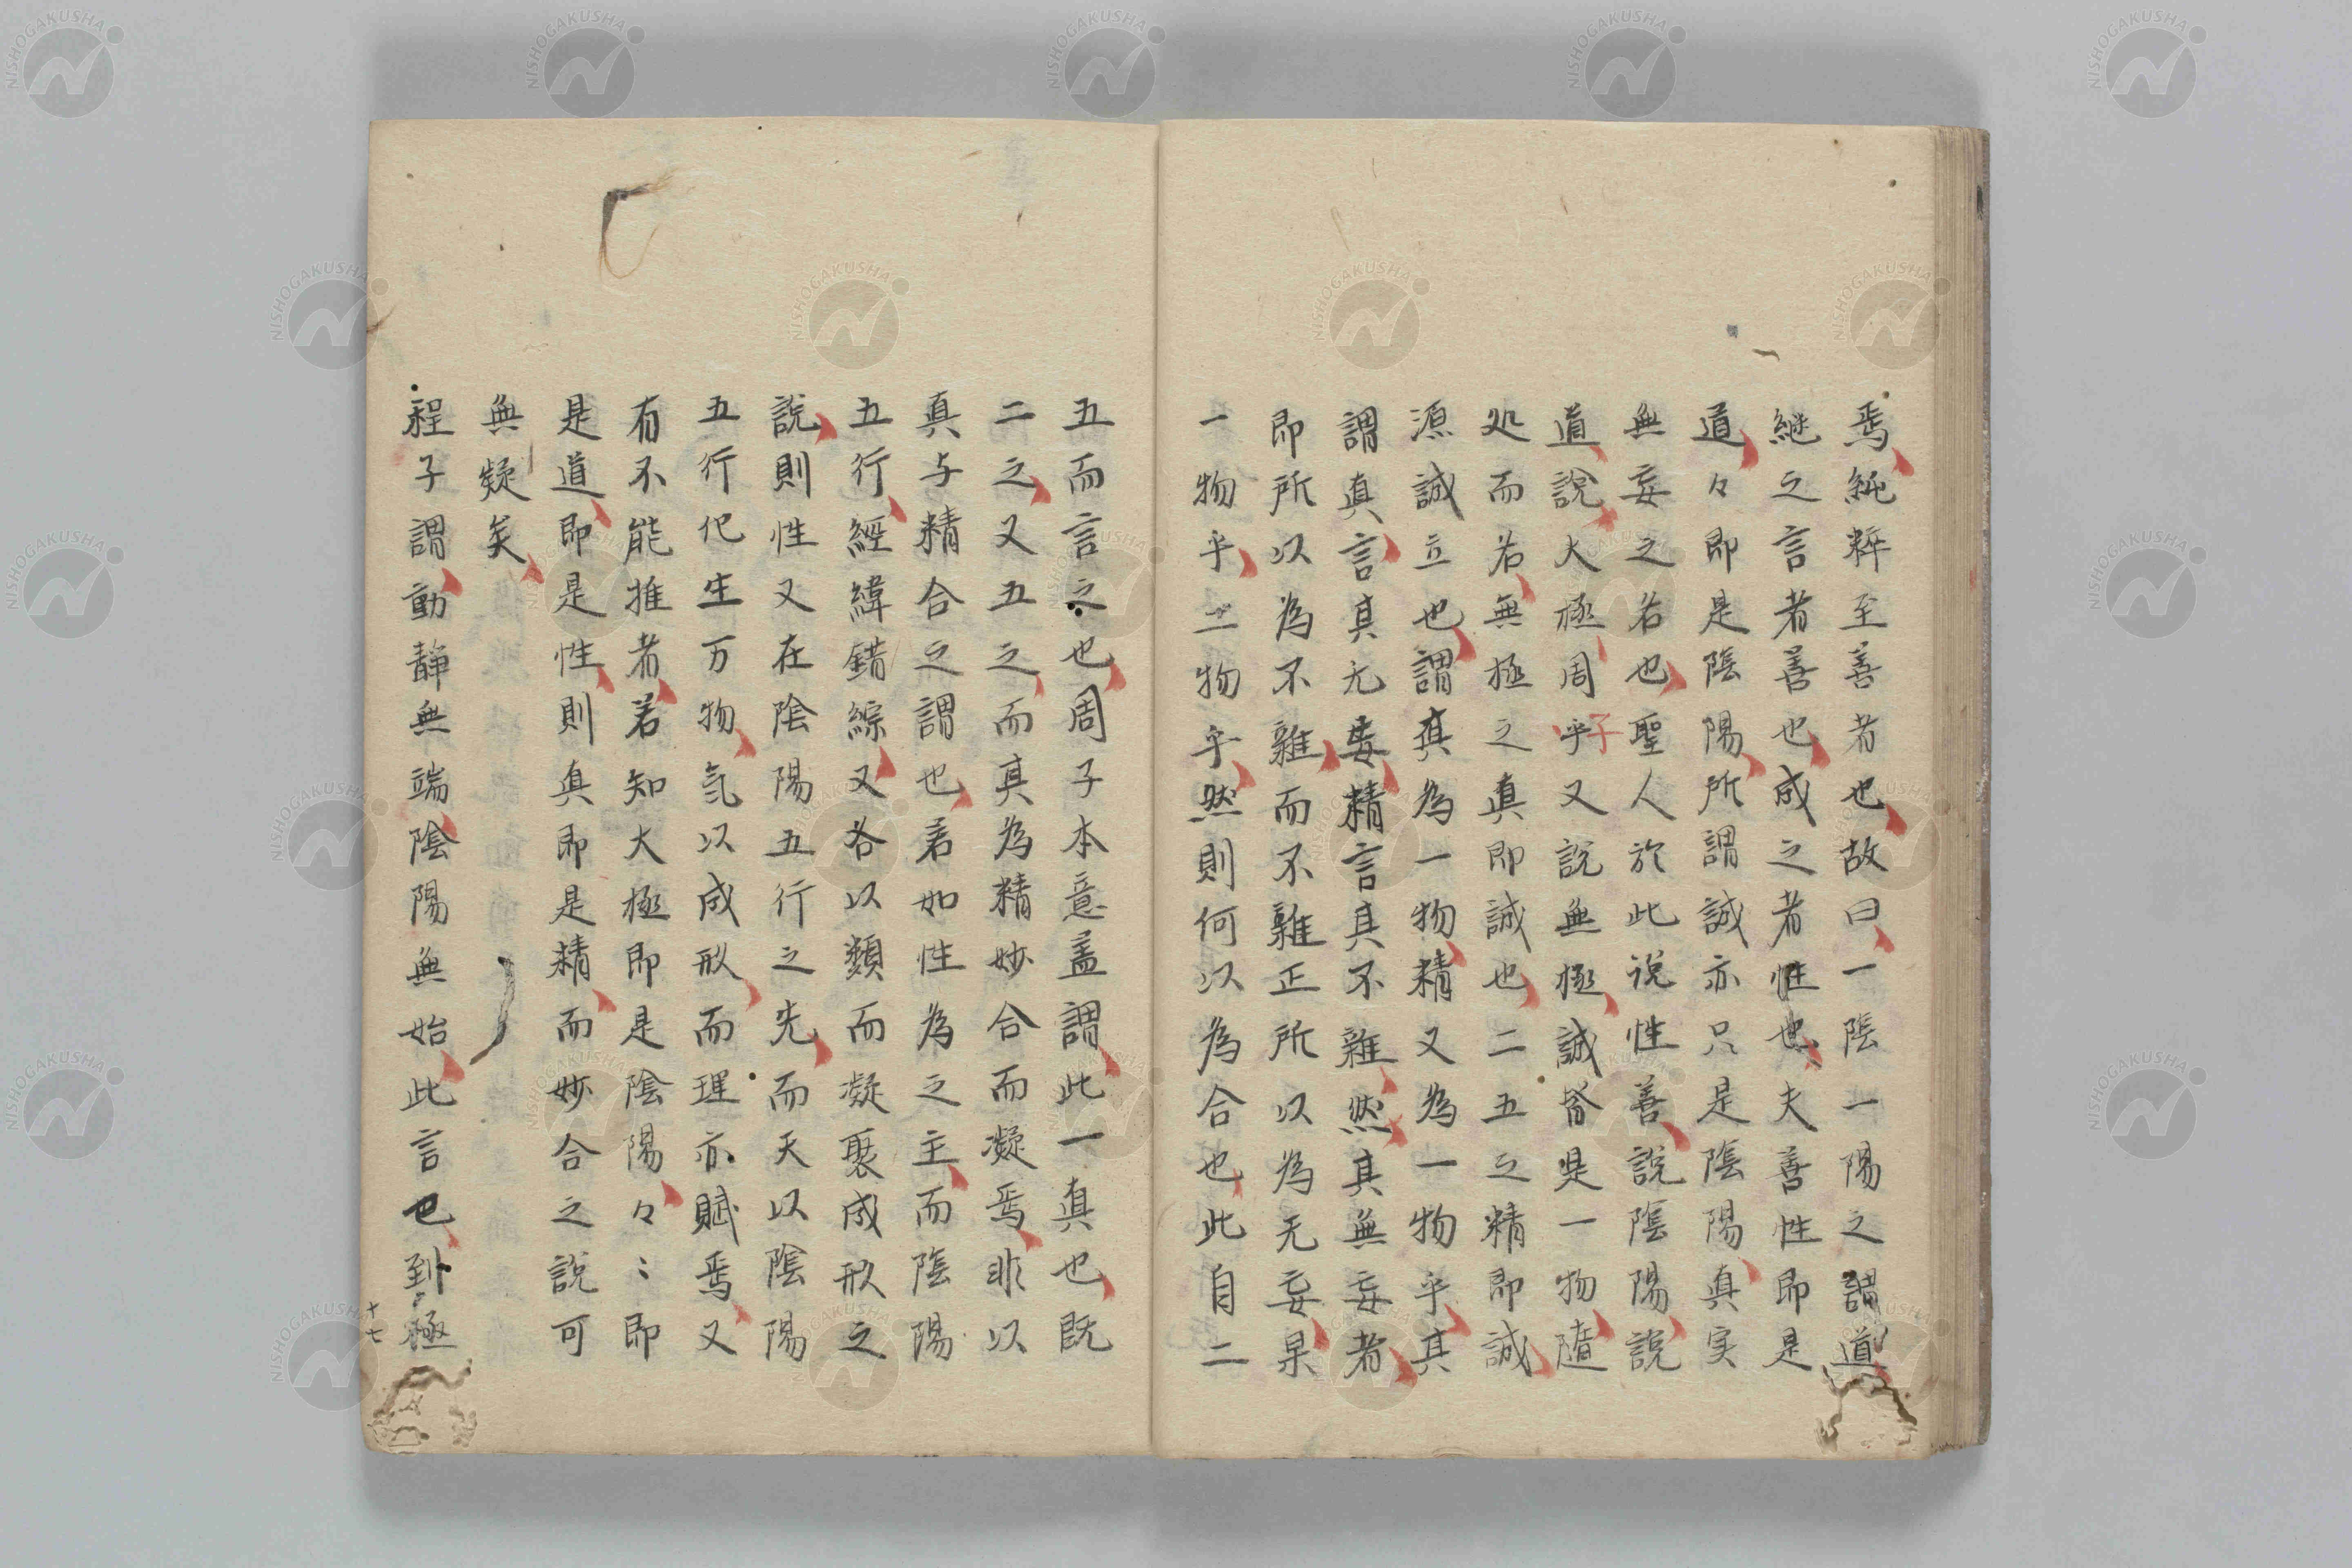 焉純粹至善者也故曰一陰一陽之謂道
継之言者善也成之者性也夫善性即是
道々即是陰陽所謂誠亦只是陰陽真实
無妄之名也聖人於此说性善說陰陽說
道說大極周子乎又説無極誠皆是一物隨
処而名無極之真即誠也二五之精即誠
源誠立也謂真為一物精又為一物乎其
謂真言真无妄精言其不雜然真無妄者
即所以為不雜而不雜正所以為无妄果
一物乎二物乎然則何以為合也此自二
五而言之也周子本意盖謂此一真也既
二之又五之而真為精妙合而凝焉非以
真与精合之謂也若如性為之主而陰陽
五行經緯錯綜又各以類而凝聚成形之
說則性又在陰陽五行之先而天以陰陽
五行化生万物氣以成形而理亦賦焉又
有不能推者若知大極即是陰陽々々即
是道即是性則真即是精而妙合之說可
無疑矣
程子謂動静無端陰陽無始此言也到極
十七
NISHOGAKUSHA